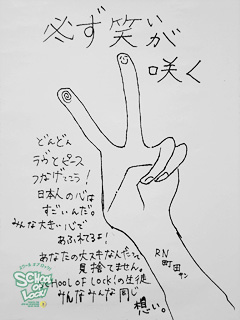 必ず笑いが
咲く
どんどん
ラヴとピース
つなげてこう!
日本人の心は
すごいんだ。
みんな大きい心で
あふれてるよ!
あなたの大スキな人だって
見捨てません。
SCHOOL OF LOCK!の生徒
みんなみんな同じ
想い。
RN
町田
サン
SCHOOL
OF
LOCK!